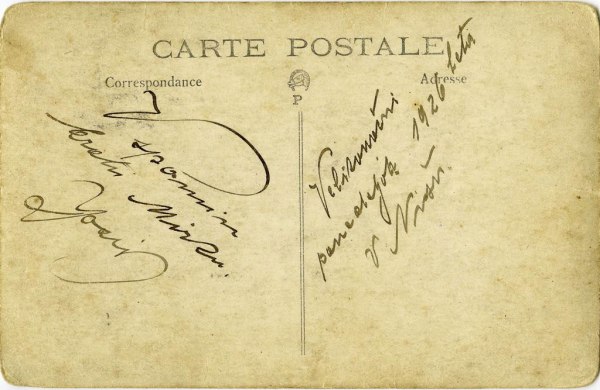 CARTE POSTALE
Correspondance
Adresse
P
V spomin
bratu Mirku
Velikonočni
ponedeljek 1926 leta
v Nišu.